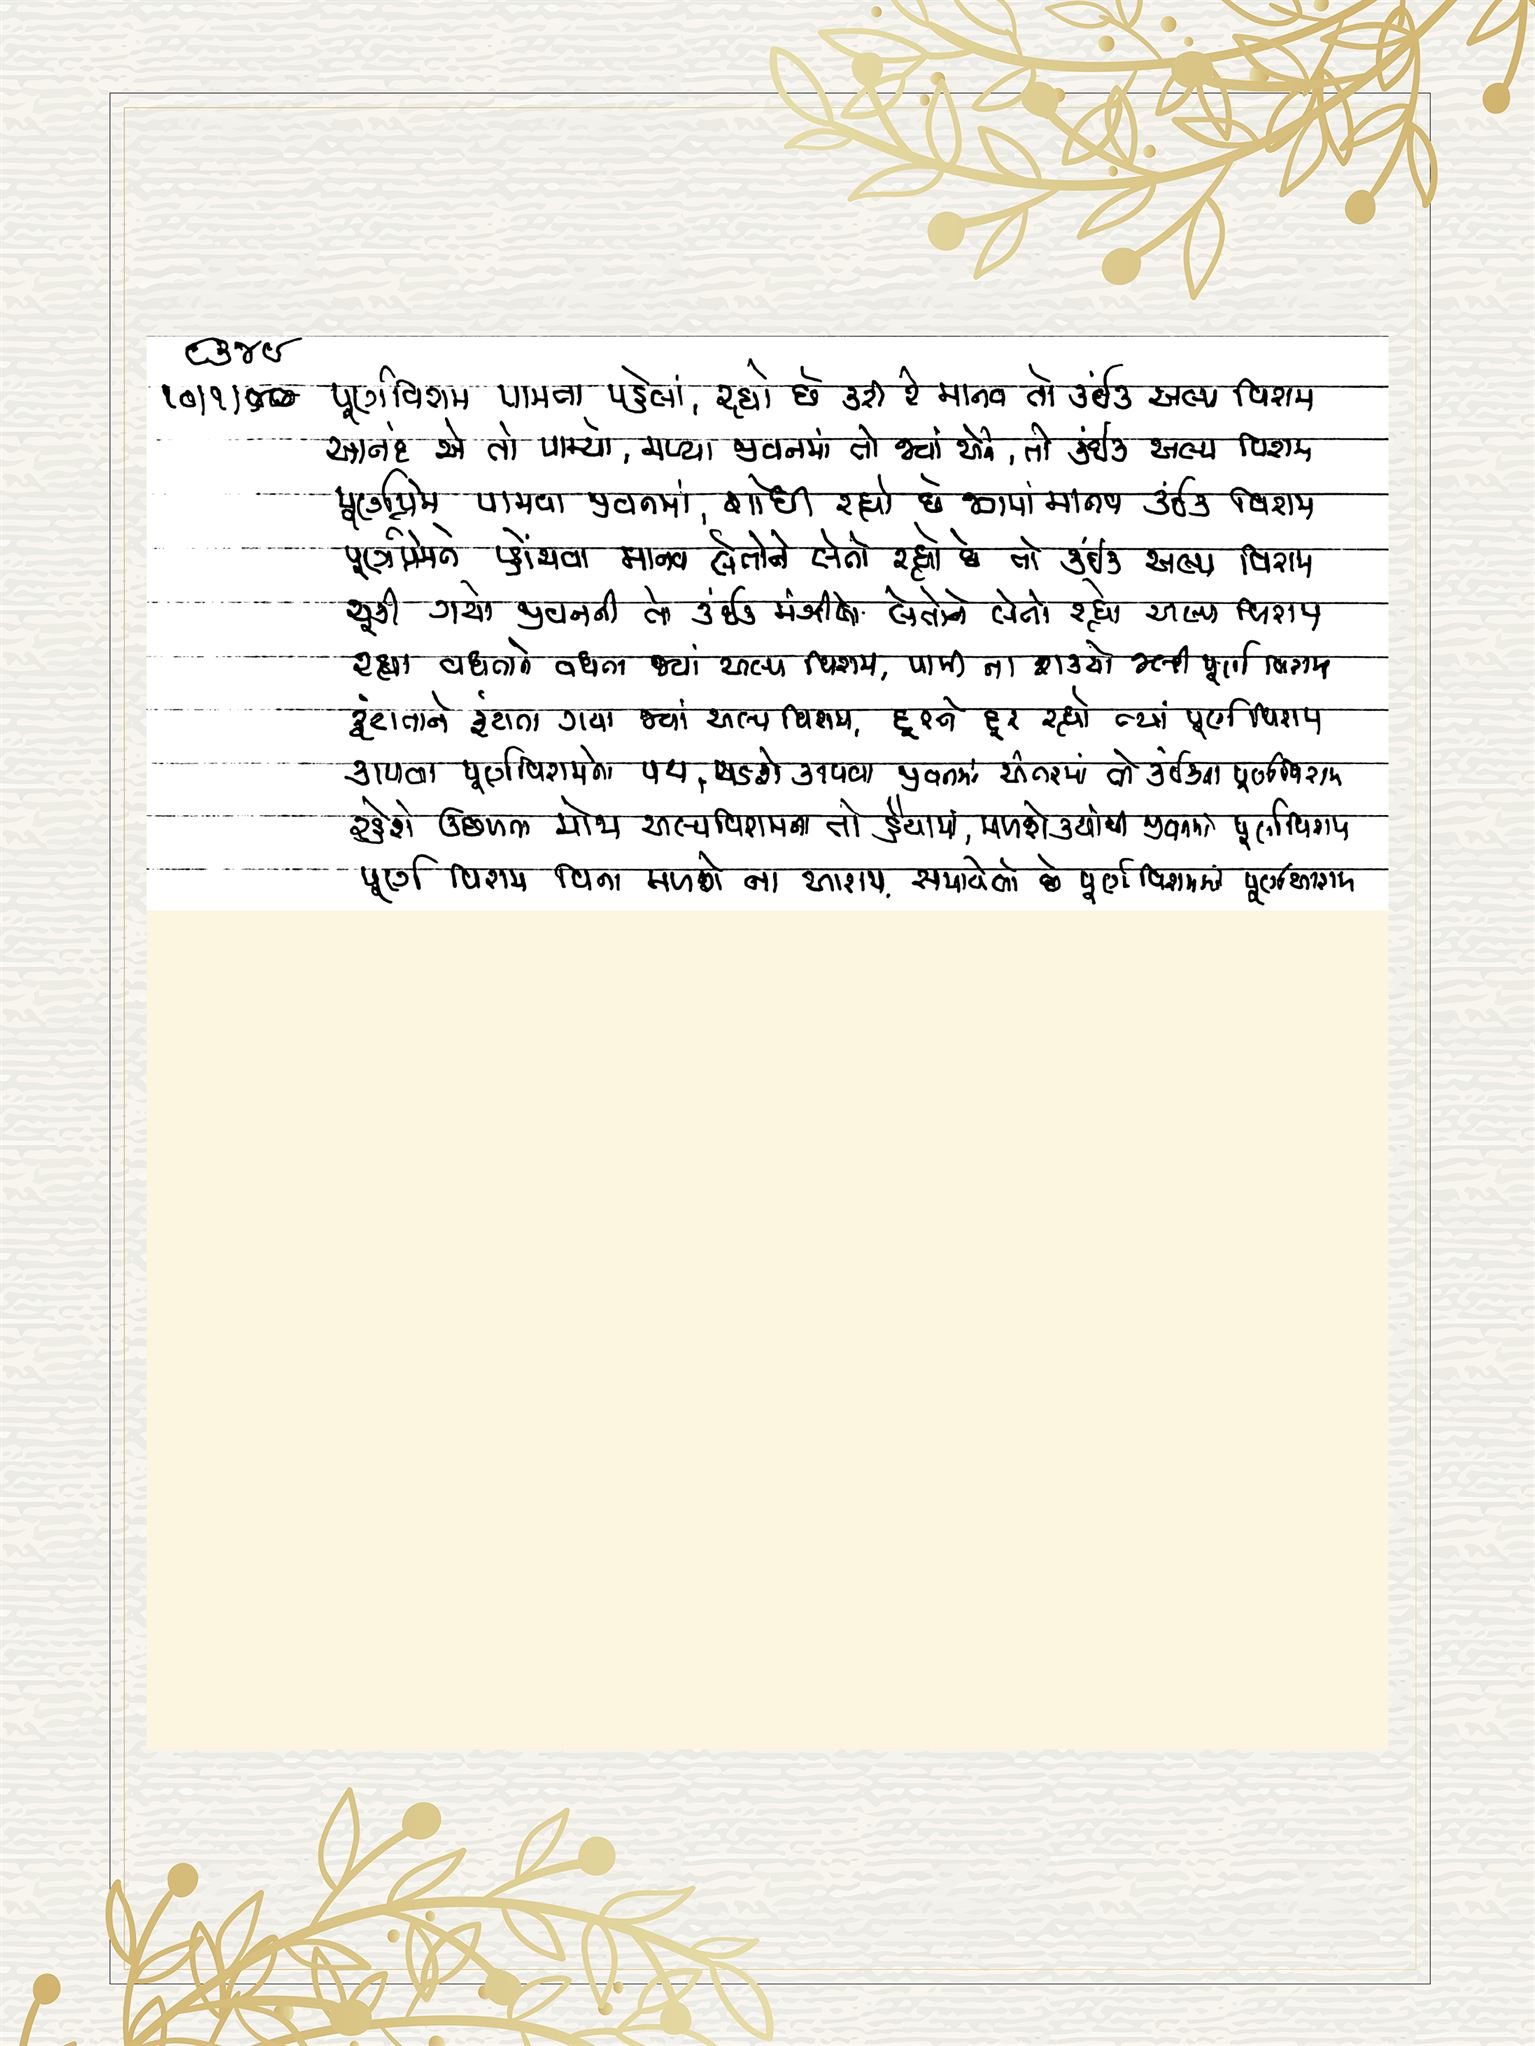 પૂર્ણવિરામ પામતા પહેલાં, રહ્યો છે કરી રે માનવ તો કંઈક અલ્પ વિરામ
આનંદ એ તો પામ્યો, મળ્યા જીવનમાં તો જ્યાં એને, તો કંઈક અલ્પ વિરામ
પૂર્ણપ્રેમ પામવા જીવનમાં, શોધી રહ્યો છે જગમાં માનવ કંઈક વિરામ
પૂર્ણપ્રેમને પહોંચવા માનવ લેતોને લેતો રહ્યો છે તો કંઈક અલ્પ વિરામ
ચૂકી ગયો જીવનની તો કંઈક મંઝીલો લેતોને લેતો રહ્યો અલ્પ વિરામ
રહ્યા વધતાને વધતા જ્યાં અલ્પ વિરામ, પામી ના શક્યો પૂર્ણ વિરામ
રૂંધાતાને રૂંધાતા ગયા જ્યાં અલ્પ વિરામ, દૂરને દૂર રહ્યો ત્યાં પૂર્ણ વિરામ
કાપવા પૂર્ણવિરામના પથ, પડશે કાપવા જીવનમાં અંતરમાં તો પૂર્ણવિરામ
રહેશે ઉછળતા મોજા અલ્પવિરામના તો હૈયામાં, મળશે ક્યાંથી જીવનમાં પૂર્ણવિરામ
પૂર્ણ વિરામ વિના મળશે ના આરામ, સમાયેલો છે પૂર્ણ વિરામમાં પૂર્ણ આરામ